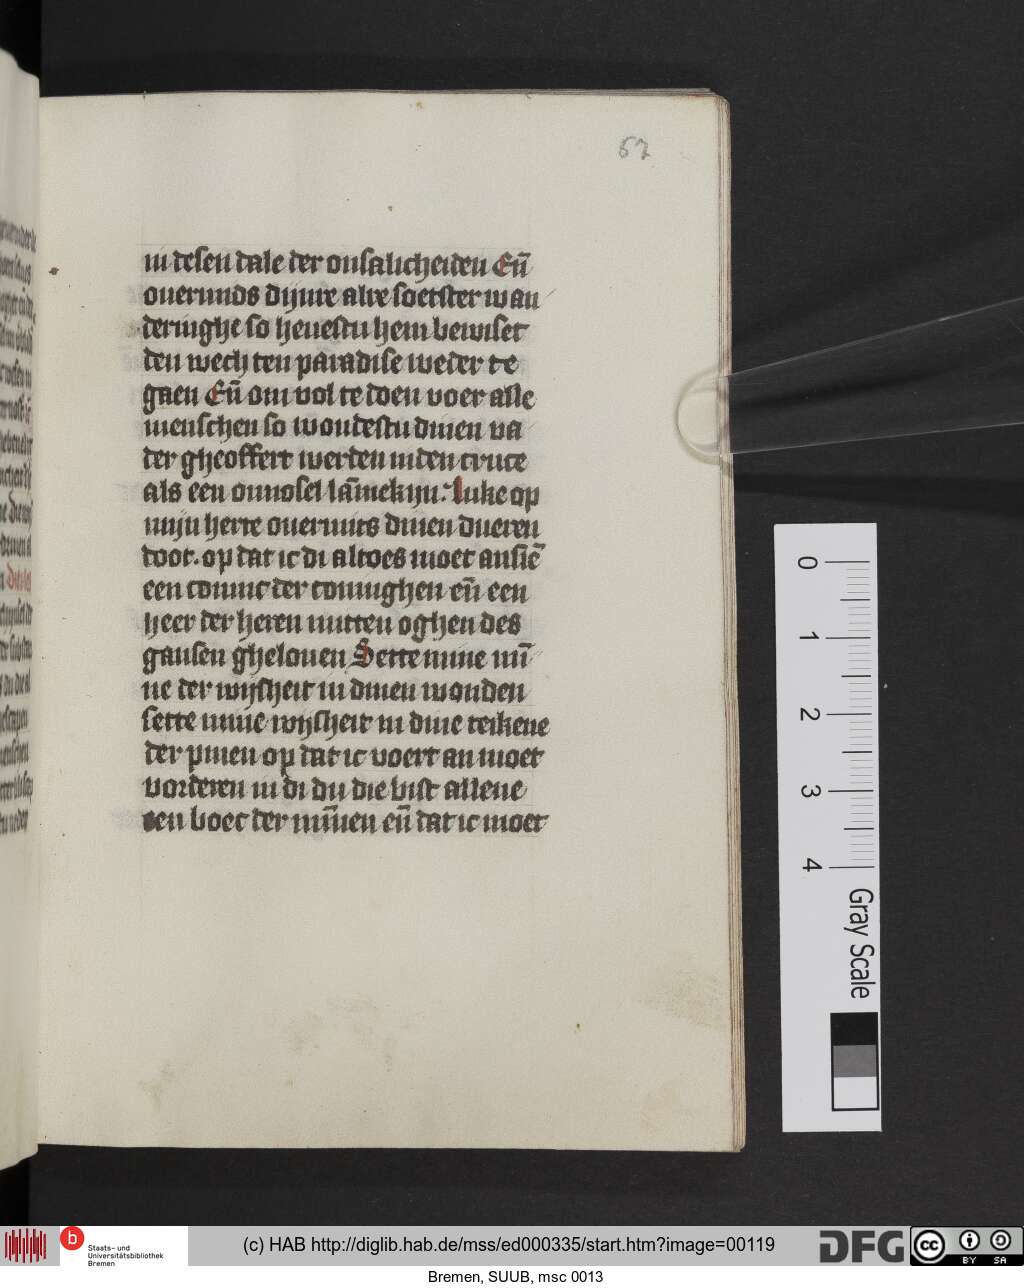 67
in desen dale der onsalicheiden Eñ
ouermids dijnre alre soetster wan
deringhe so heuestu hem bewiset
den wech ten paradise weder te
gaen Eñ om vol te doen voer alle
menschen so woudestu dinen va
der gheoffert werden inden cruce
als een onnosel lãmekijn. Luke op
mijn herte ouermits dinen dueren
doot. op dat ic di altoes moet ansiẽ
een coninc der coninghen eñ een
heer der heren mitten oghen des
gansen ghelouen Sette mine mĩ
ne der wijsheit in dinen wonden
sette mine wijsheit in dine teikene
der pinen op dat ic voert an moet
vorderen in di du die bist allene
een boec der mĩnen eñ dat ic moet
0
1
2
3
4
Gray Scale
b
Staats- und
Universitätsbibliothek
Bremen
(c) HAB http://diglib.hab.de/mss/ed000335/start.htm?image=00119
DFG
cc
BY SA
Bremen, SUUB, msc 0013